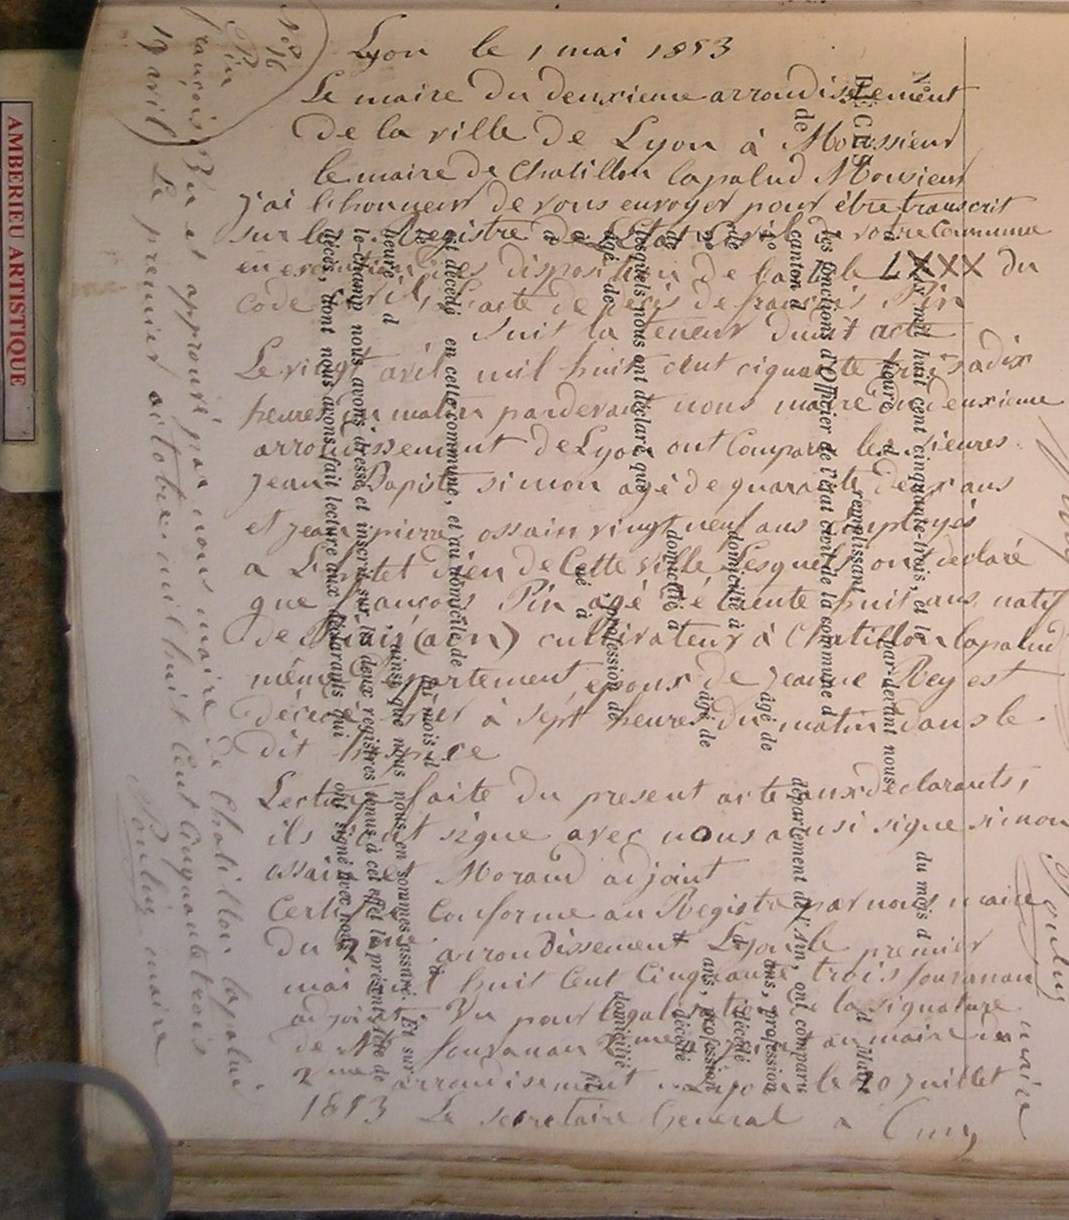 Lyon le 1 mai 1853
Le maire du deuxieme arrondissement
de la ville de Lyon à Monsieur
le maire de Chatillon lapalud Monsieur
j'ai l'honneur de vous envoyer pour être transcrit
sur les Registre de L'Etat Civil de votre Commune
en execution des disposition de l'article LXXX du
code civil, l'acte de décès de francois Pin
suit la teneur dudit acte
Le vingt avril mil huit cent cinquante trois a dix
heures du matin pardevant nous maire du deuxieme
arrondissement de Lyon ont Comparu les sieures
Jean Bapiste simon agé de quarante deux ans
et jean pierre ossain vingt neuf ans employés
a L'hotel dieu de Cette ville Lesquels on declaré
que francois Pin agé de trente huit ans natif
de (ain) cultivateur à Chatillon lapalud
même departement epoux de jeanne Rey est
décédé hier à sept heures du matin dans le
dit hospice
Lecture faite du present acte aux déclarants,
ils ont signe avec nous ainsi signe simon
ossain et Morand adjoint
Certifié Conforme au Registre par nous maire
du 2me arrondissement Lyon le premier
mai mil huit Cent Cinquante trois
adjoint Vu pour legalisation de la signature
de Mr 2me adjoint au maire du
2me arrondisement Lyon le 20 juillet
1853 Le secretaire General
No 16
Pin
françois
19 avril
Vu et approuvé par nous maire de Chatillon lapalud
Le premier octobre mil huit Cent Cinquante trois
maire
maire
No
DÉCÈS
de
mil huit cent cinquante-trois, et le du mois d
heure d par-devant nous
remplissant
les fonctions d'Officier de l'état civil de la commune d
canton d département de l'Ain, ont comparu
1o âgé de ans, profession
de domicilié à
2o âgé de ans, profession
de domicilié à
lesquels nous ont déclaré que
âgé de , profession de domicilié
à né à
est décédé en cette commune, et au domicile de
du mois d
heure d , ainsi que nous nous en sommes assuré. Et sur-
le-champ nous avons dressé et inscrit sur les deux registres tenus à cet effet le présent acte de
décès, dont nous avons fait lecture aux déclarants qui ont signé avec nous.
AMBERIEU ARTISTIQUE